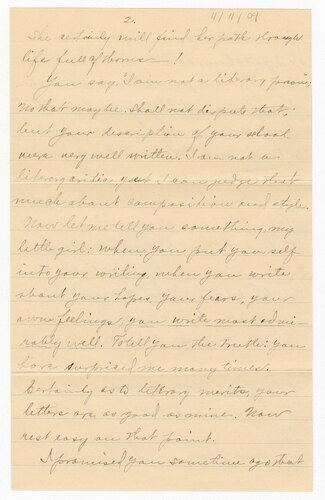 2.
11/11/09
She certainly will find her path through
life full of thorns—!
You say, "I am not a literary person;"
No that may be. Shall not dispute that;
but your description of your school
were very well written. I am not a
literary critic yet I can judge that
much about composition and style.
Now let me tell you something, my
little girl: when you put your self
into your writing, when you write
about your hopes, your fears, your
own feelings, you write most admi-
rably well. To tell you the truth: you
have surprised me many times.
Certainly as to literary merits, your
letters are as good as mine. Now
rest easy on that point.
I promised you sometime ago that